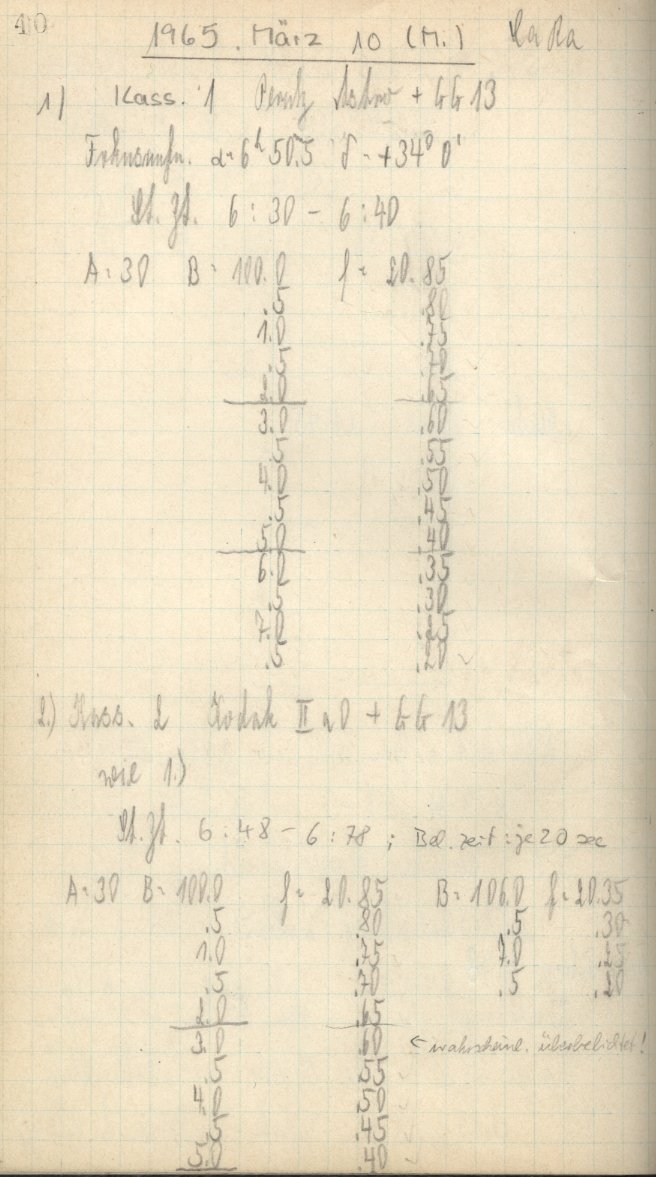 40
1965. März 10 (Mi.) La Ra
1) Kass. 1 Perutz Astro + GG 13
Fokusaufn. α = 6h 50.5 δ = +34° 0'
St. Zt. 6:30 - 6:40
A = 30 B = 100.0 f = 20.85
.5 .80
1.0 .75
.5 .70
2.0 .65
3.0 .60
.5 .55
4.0 .50
.5 .45
5.0 .40
6.0 .35
.5 .30
7.0 .25
.5 .20
2.) Kass. 2 Kodak II a O + GG 13
wie 1.)
St. Zt. 6:48 - 6:78 ; Bel. zeit: je 20 sec
A = 30 B = 100.0 f = 20.85 B = 106.0 f = 20.35
.5 .80 .5 .30
1.0 .75 7.0 .25
.5 .70 .5 .20
2.0 .65
3.0 .60 ← wahrscheinl. überbelichtet!
.5 .55
4.0 .50
.5 .45
5.0 .40